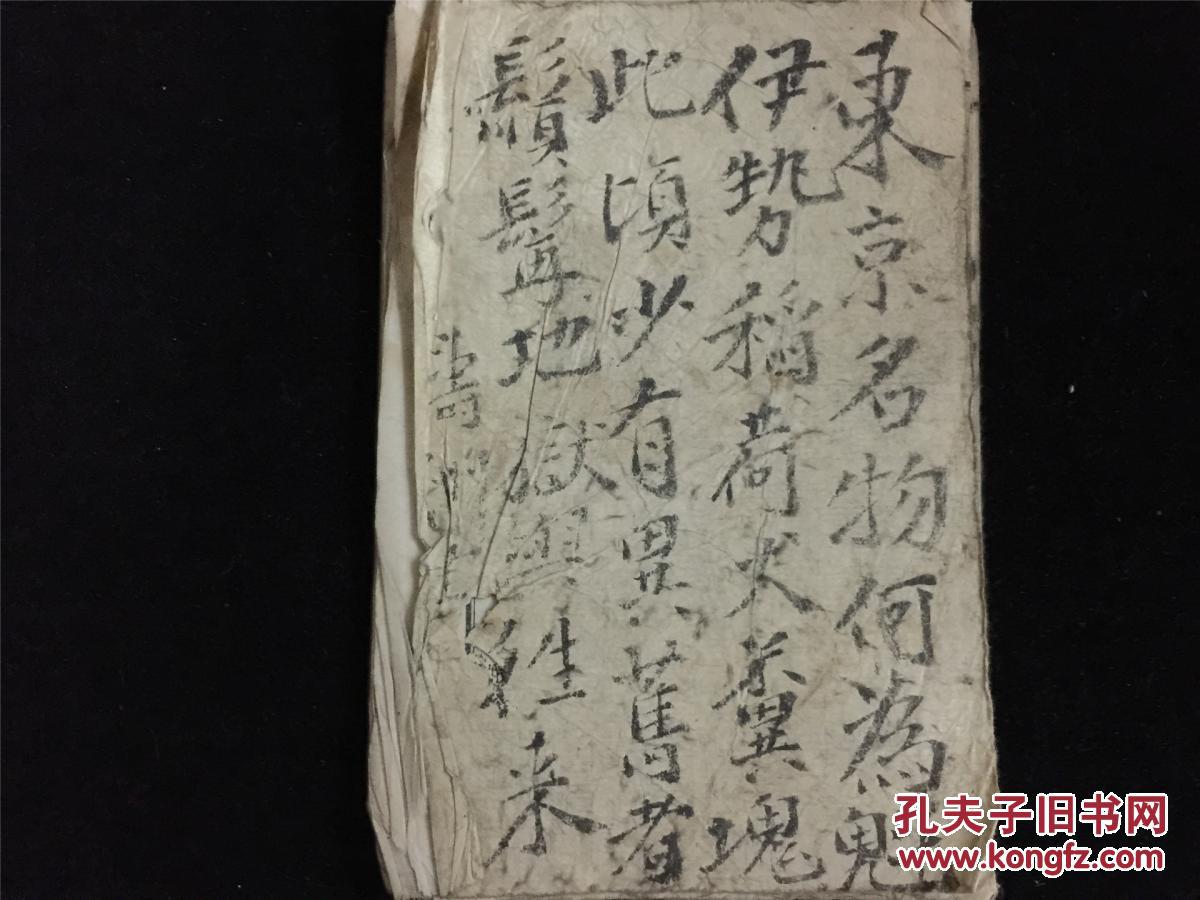 東京名物何為魁
伊勢稲荷犬糞塊
此頃少有異舊者
鬚髯地獄與往来
孔夫子旧书网
www.kongfz.com